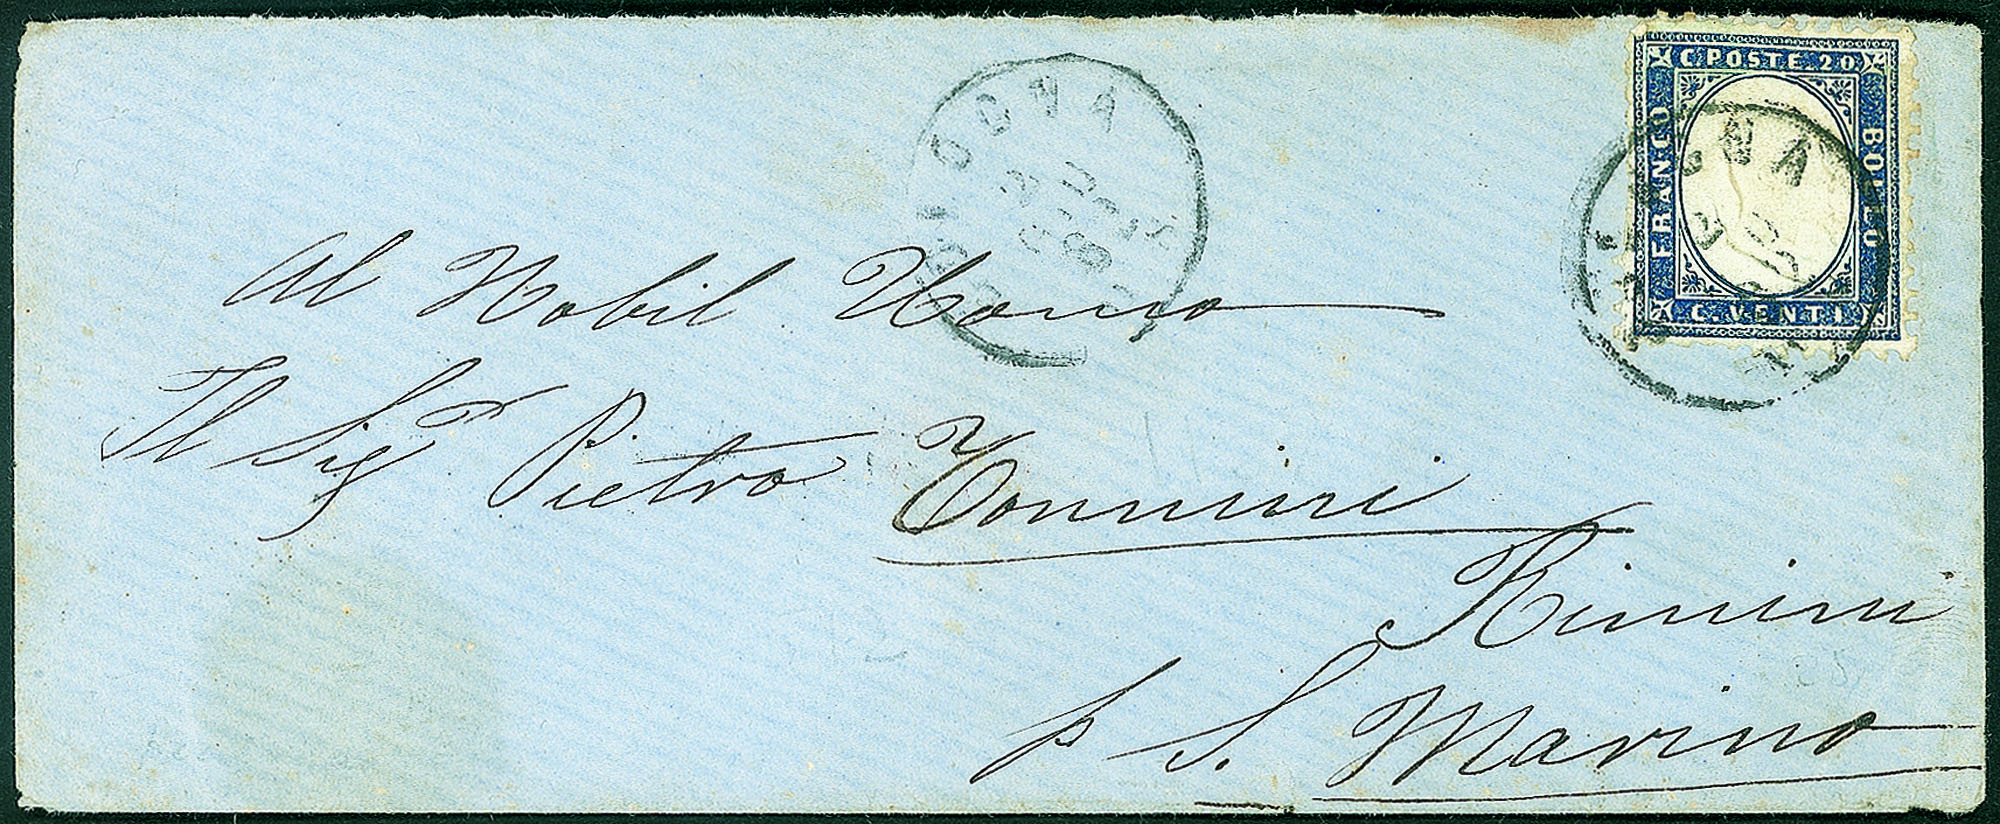 C. POSTE. 20
FRANCO
BOLLO
C. VENTI
BOLOGNA
Al Nobil Uomo
Il Sigr Pietro Tonnini
Rimini
p S. Marino